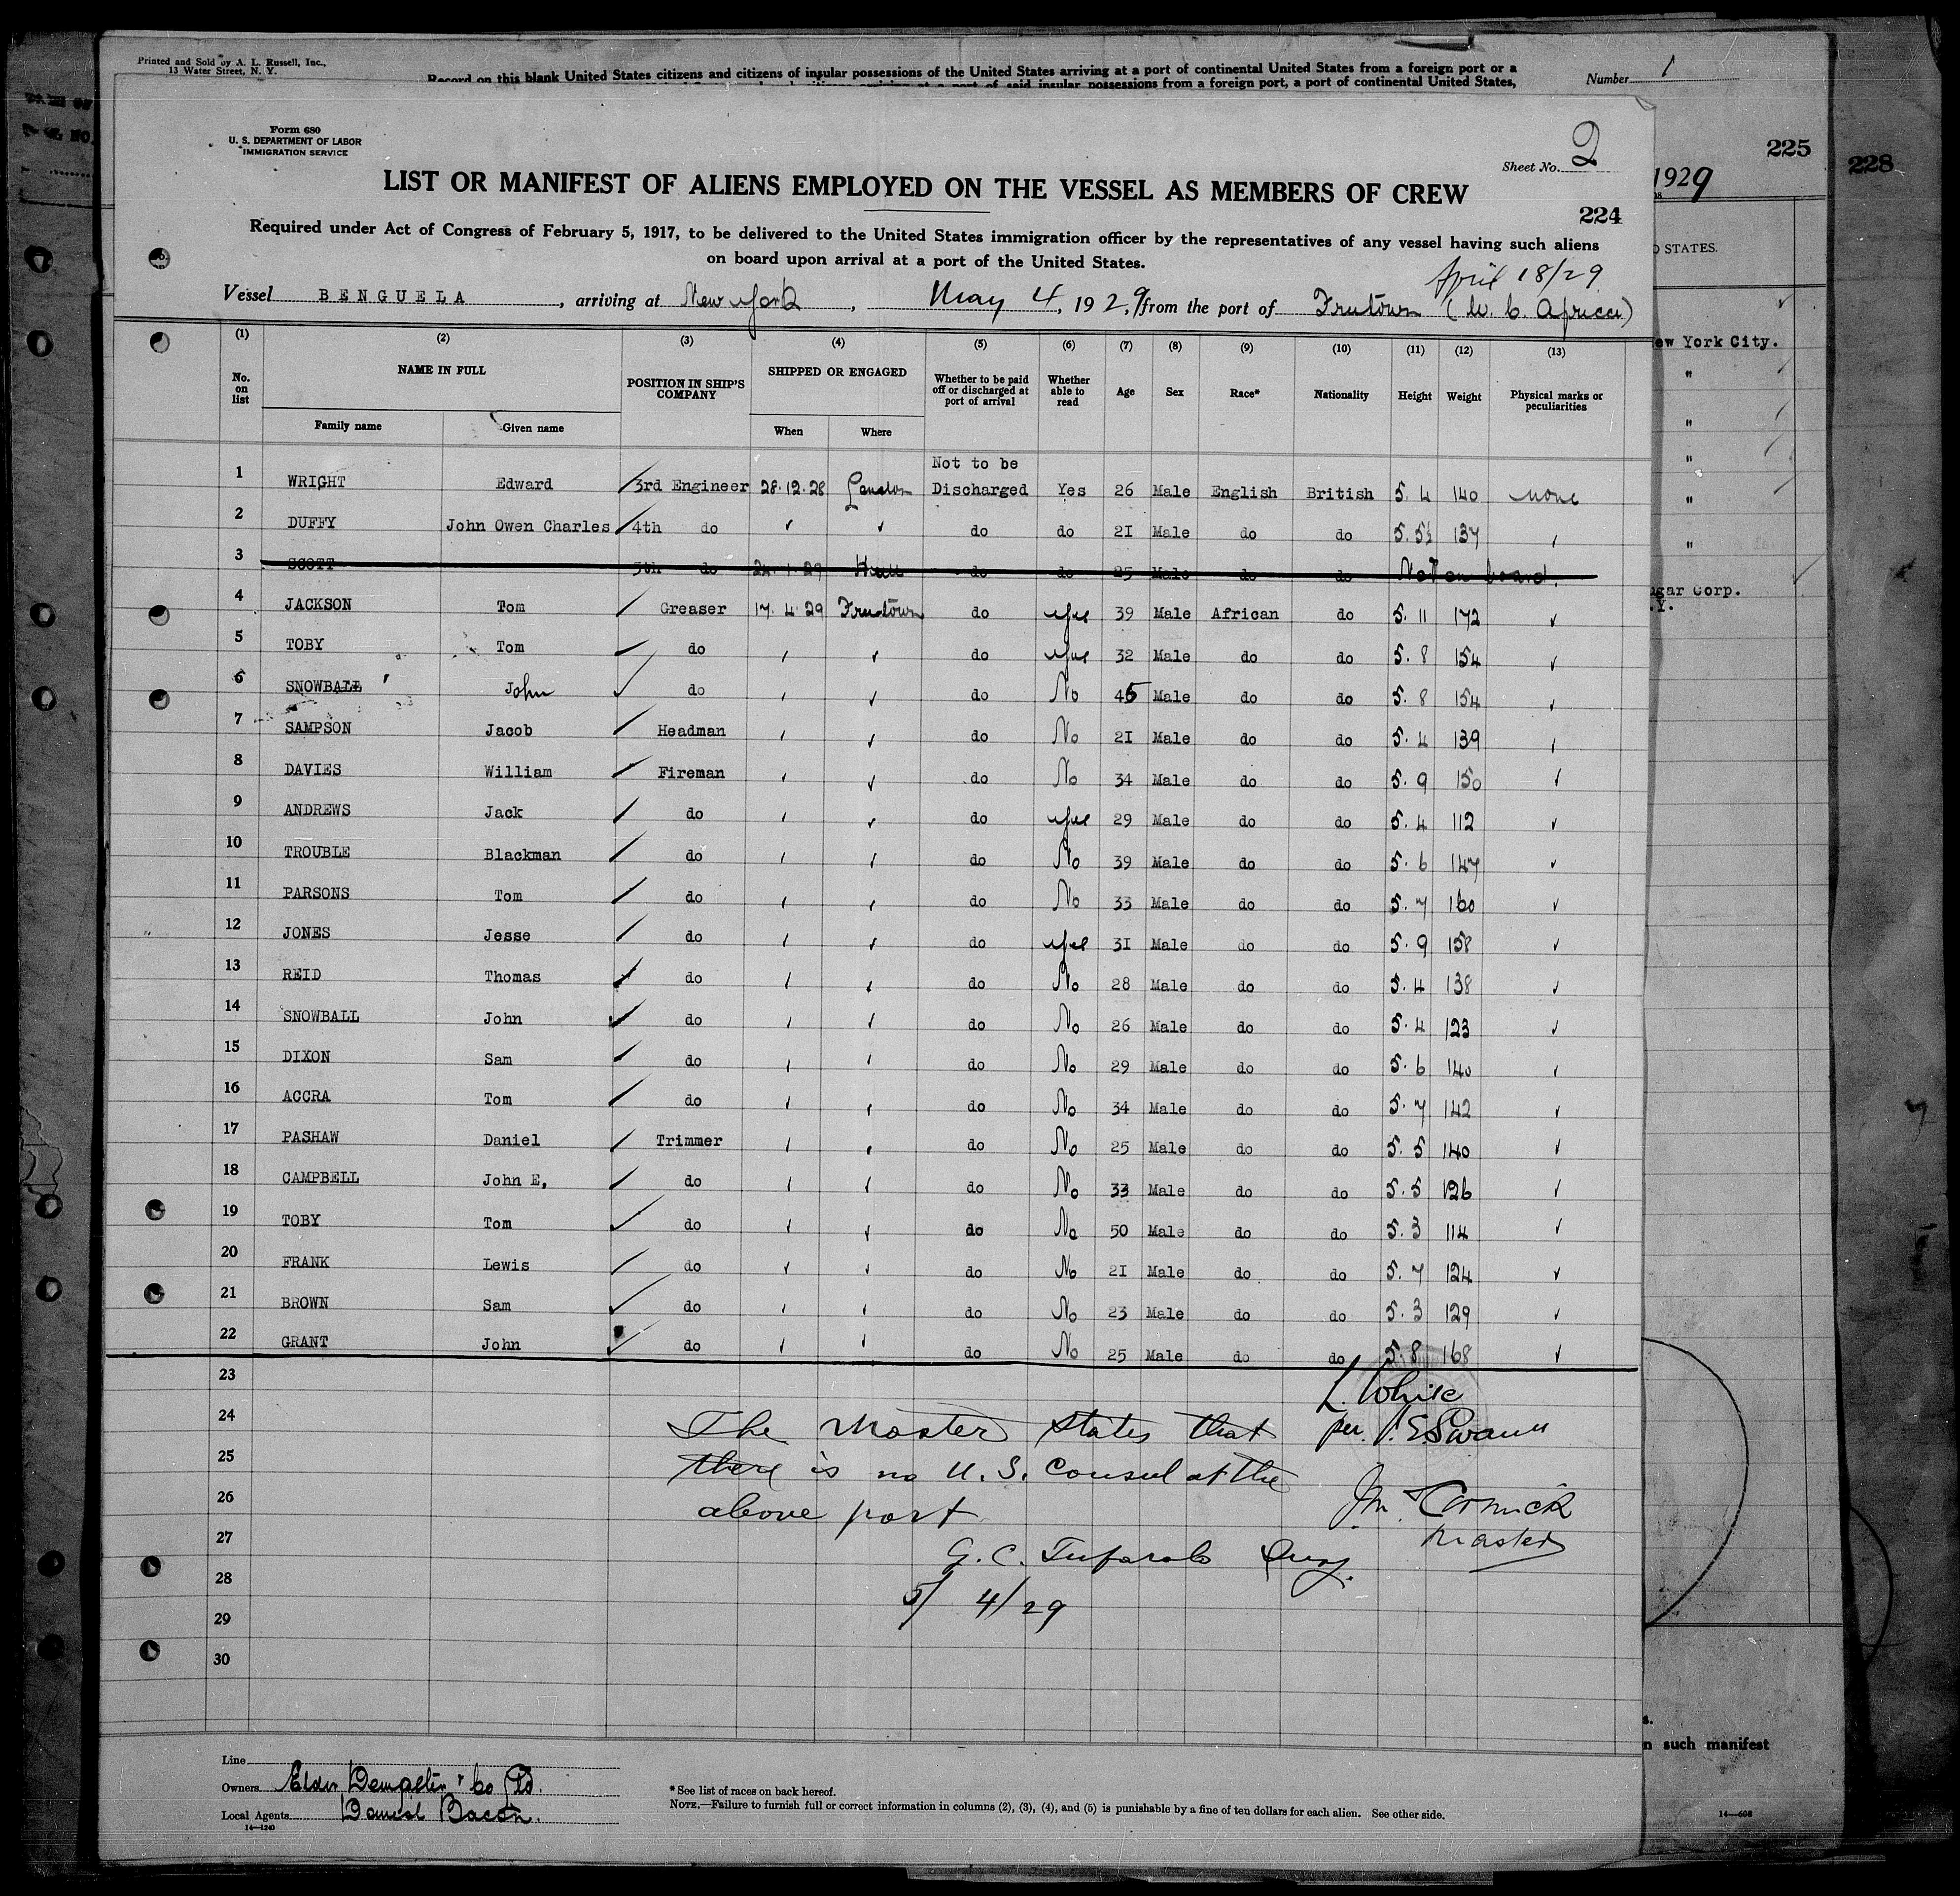 Printed and Sold by A. L. Russell, Inc.,
13 Water Street, N. Y.
Record on this blank United States citizens and citizens of insular possessions of the United States arriving at a port of continental United States from a foreign port or a
a port of said insular possessions from a foreign port, a port of continental United States,
Number 1
225
228
1929
STATES.
Form 680
U. S. DEPARTMENT OF LABOR
IMMIGRATION SERVICE
Sheet No. 2
LIST OR MANIFEST OF ALIENS EMPLOYED ON THE VESSEL AS MEMBERS OF CREW
224
Required under Act of Congress of February 5, 1917, to be delivered to the United States immigration officer by the representatives of any vessel having such aliens
on board upon arrival at a port of the United States.
April 18/29
Vessel BENGUELA, arriving at New York, May 4, 1929, from the port of Freetown (W. C. Africa)
(1) (2) (3) (4) (5) (6) (7) (8) (9) (10) (11) (12) (13)
No. on list NAME IN FULL POSITION IN SHIP'S COMPANY SHIPPED OR ENGAGED Whether to be paid off or discharged at port of arrival Whether able to read Age Sex Race* Nationality Height Weight Physical marks or peculiarities
Family name Given name When Where
1 WRIGHT Edward 3rd Engineer 28.12.28 London Not to be Discharged Yes 26 Male English British 5. 4 140 none
2 DUFFY John Owen Charles 4th do do do 21 Male do do 5. 5½ 137
3 SCOTT 5th do 24.1.29 Hull do do 25 Male do do Not on board.
4 JACKSON Tom Greaser 17.4.29 Freetown do Yes 39 Male African do 5. 11 172
5 TOBY Tom do do Yes 32 Male do do 5. 8 154
6 SNOWBALL John do do No 45 Male do do 5. 8 154
7 SAMPSON Jacob Headman do No 21 Male do do 5. 4 139
8 DAVIES William Fireman do No 34 Male do do 5. 9 150
9 ANDREWS Jack do do Yes 29 Male do do 5. 4 112
10 TROUBLE Blackman do do No 39 Male do do 5. 6 147
11 PARSONS Tom do do No 33 Male do do 5. 7 160
12 JONES Jesse do do Yes 31 Male do do 5. 9 158
13 REID Thomas do do No 28 Male do do 5. 4 138
14 SNOWBALL John do do No 26 Male do do 5. 4 123
15 DIXON Sam do do No 29 Male do do 5. 6 140
16 ACCRA Tom do do No 34 Male do do 5. 7 142
17 PASHAW Daniel Trimmer do No 25 Male do do 5. 5 140
18 CAMPBELL John E, do do No 33 Male do do 5. 5 126
19 TOBY Tom do do No 50 Male do do 5. 3 114
20 FRANK Lewis do do No 21 Male do do 5. 7 124
21 BROWN Sam do do No 23 Male do do 5. 3 129
22 GRANT John do do No 25 Male do do 5. 8 168
23
L. White
24
The Master states that per
25
there is no U. S. Consul at the
26
above port
27
Master
28
29
5/4/29
30
Line
Owners Elder Dempster & Co Ltd.
Local Agents Daniel Bacon.
14—1240
* See list of races on back hereof.
NOTE.—Failure to furnish full or correct information in columns (2), (3), (4), and (5) is punishable by a fine of ten dollars for each alien. See other side.
ew York City.
"
"
"
"
"
ugar Corp.
.Y.
s.
n such manifest
14—608